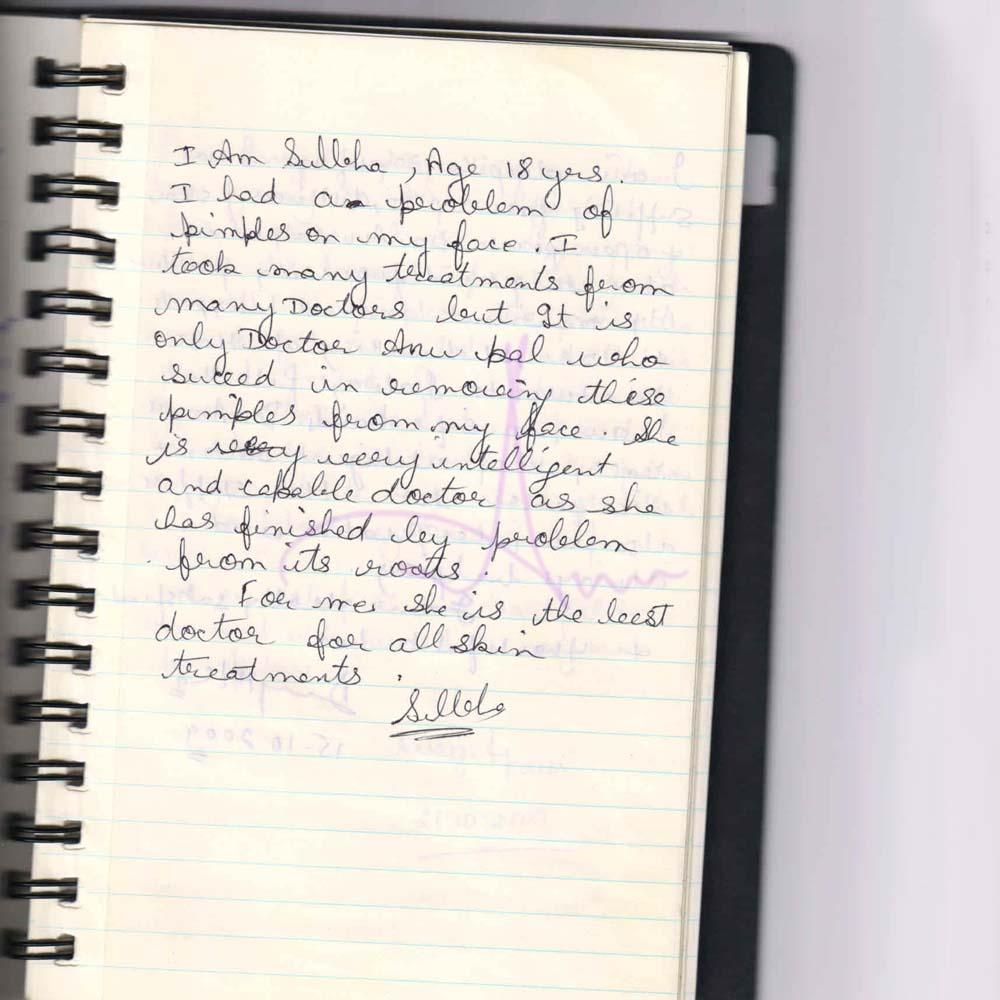 I Am Sulbha, Age 18 yrs.
I had a problem of
pimples on my face. I
took many treatments from
many Doctors but It is
only Doctor Anu pal who
suceed in removing these
pimples from my face. She
is very very intelligent
and capable doctor as she
has finished my problem
from its roots.
For me, she is the best
doctor for all skin
treatments.
Sulbha
15-10-2009